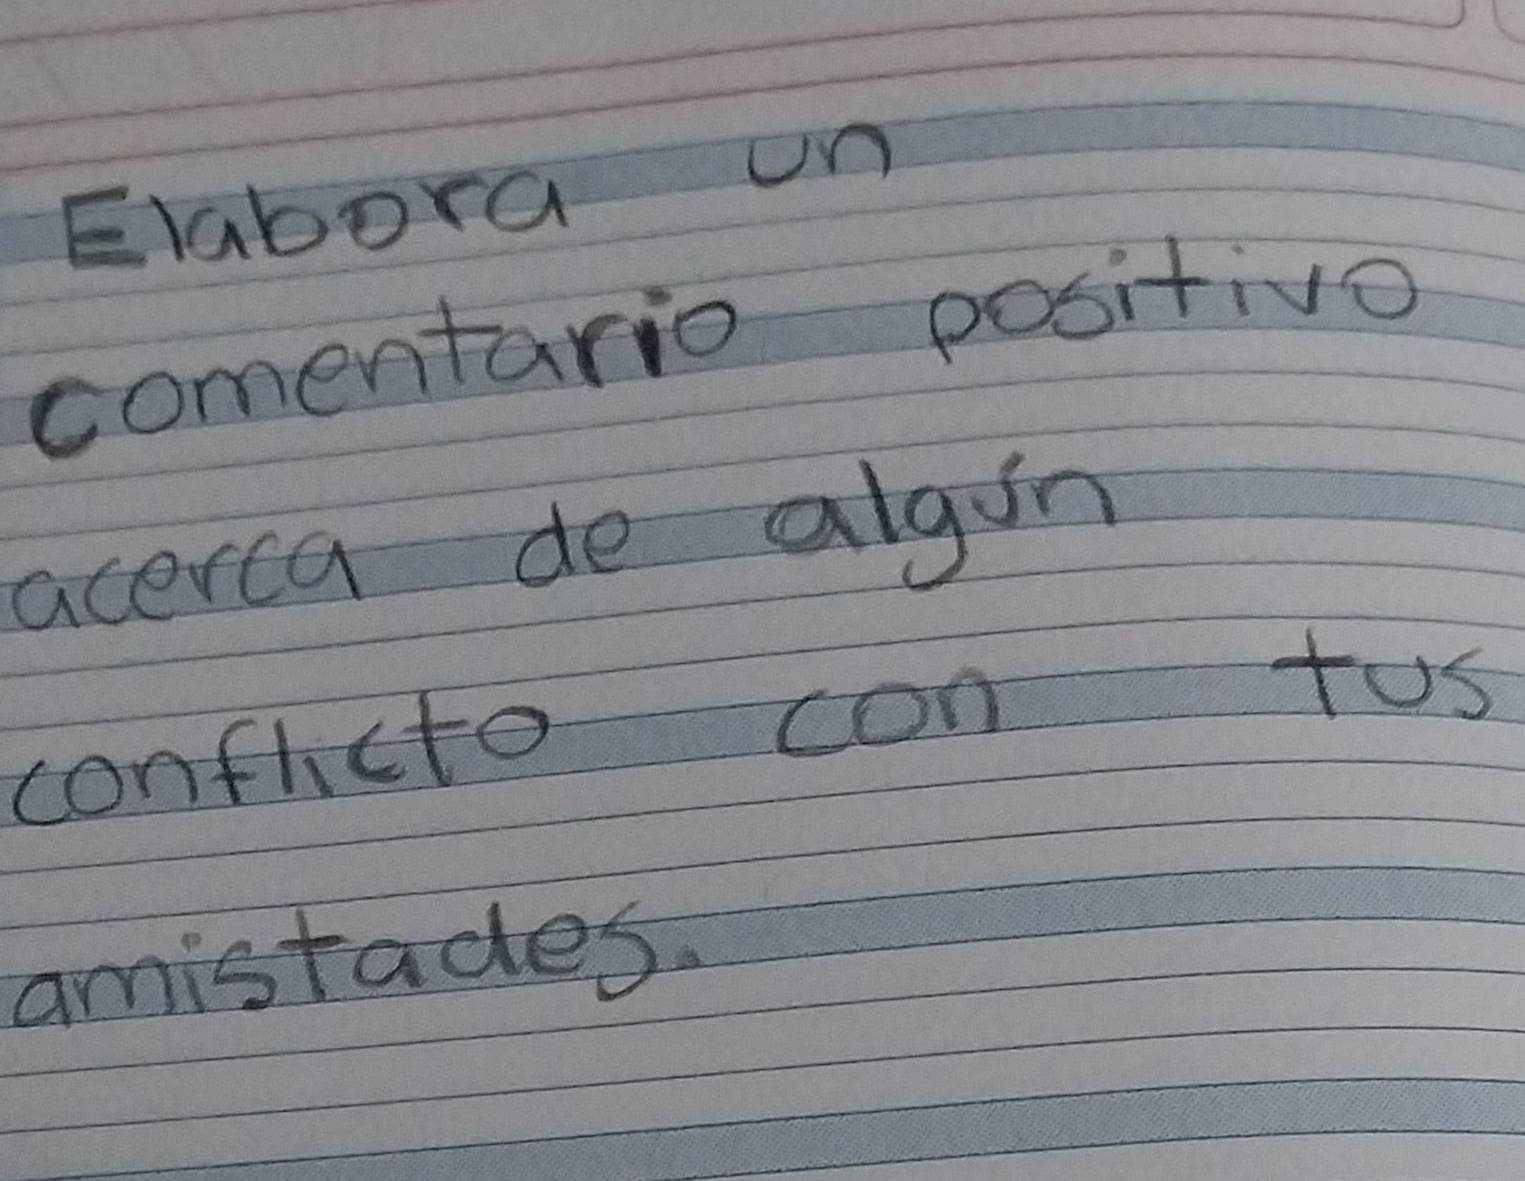 Elabora un
comentario positivo
acerca de algún
conflicto con tus
amistades.